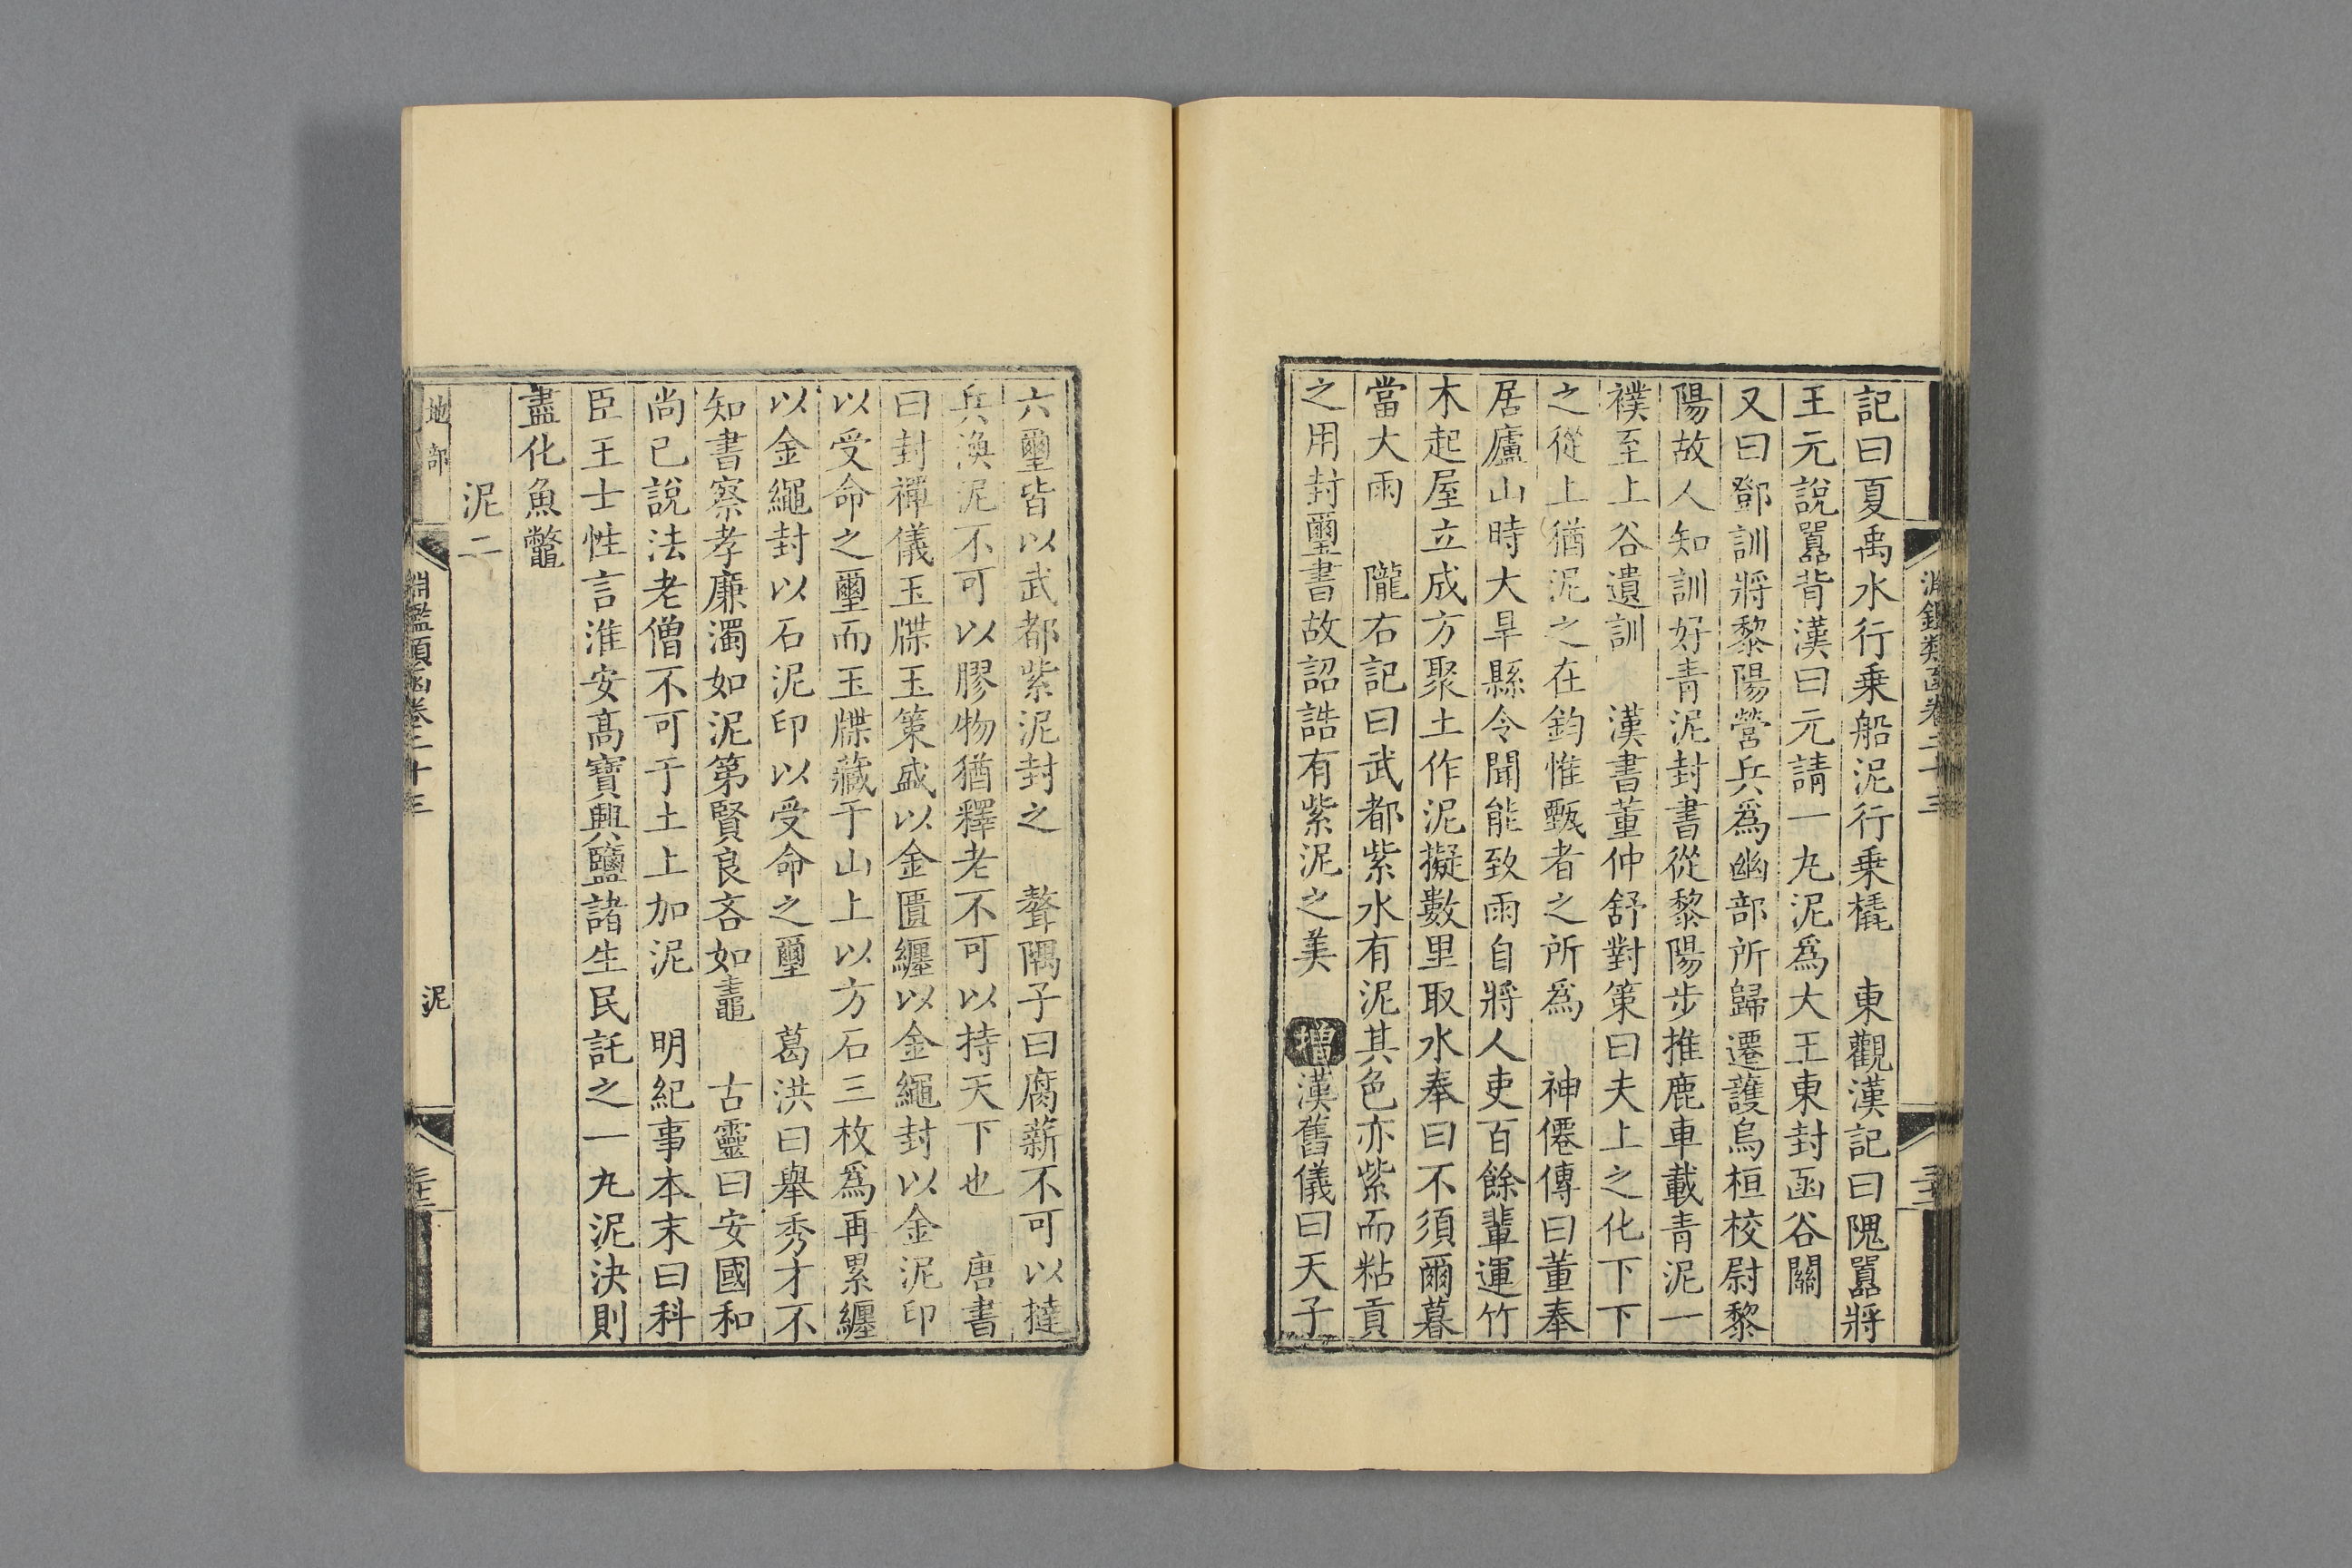 記曰夏禹水行乗船泥行乗橇　東觀漢記曰隗囂將
王元說囂背漢曰元請一九泥爲大王東封函谷關
又曰鄧訓將黎陽營兵爲幽部所歸遷護烏桓校尉黎
陽故人知訓好青泥封書從黎陽步推鹿車載青泥一
襆至上谷遺訓　漢書董仲舒對策曰夫上之化下下
之從上猶泥之在鈞惟甄者之所爲　神僊傳曰董奉
居廬山時大旱縣令聞能致雨自將人吏百餘輩運竹
木起屋立成方聚土作泥擬數里取水奉曰不須爾暮
當大雨　隴右記曰武都紫水有泥其色亦紫而粘貢
之用封璽書故詔誥有紫泥之美　增漢舊儀曰天子
六璽皆以武都紫泥封之　聱隅子曰腐薪不可以撻
兵渙泥不可以膠物猶釋老不可以持天下也　唐書
曰封禪儀玉牒玉策盛以金匱纏以金繩封以金泥印
以受命之璽而玉牒藏于山上以方石三枚爲再累纏
以金繩封以石泥印以受命之璽　葛洪曰舉秀才不
知書察孝廉濁如泥第賢良吝如鼃　古靈曰安國和
尚已說法老僧不可于土上加泥　明紀事本末曰科
臣王士性言淮安高寶興鹽諸生民託之一九泥決則
盡化魚鼈
泥二
地部
淵鑑類函卷二十三
泥